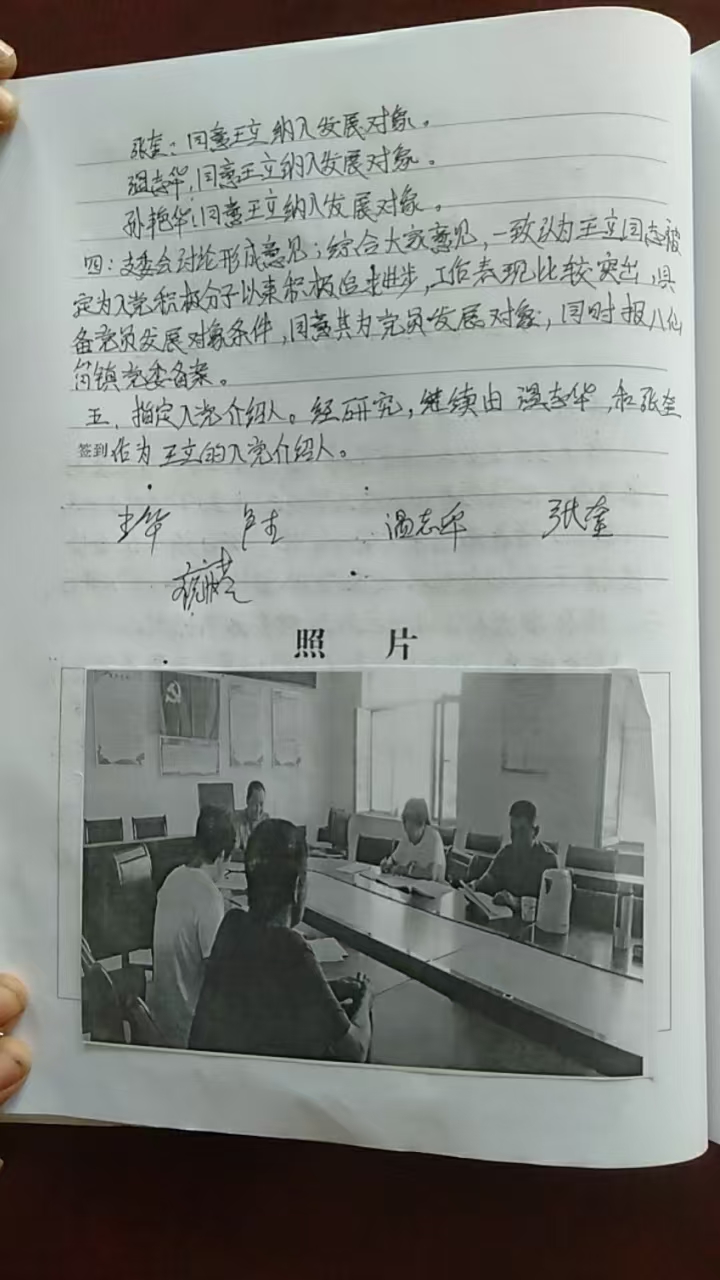 张奎：同意王立纳入发展对象。
温志华：同意王立纳入发展对象。
孙艳华：同意王立纳入发展对象。
四：支委会讨论形成意见；综合大家意见，一致认为王立同志被
定为入党积极分子以来积极追求进步，工作表现比较突出，具
备党员发展对象条件，同意其为党员发展对象，同时报八仙
筒镇党委备案。
五、指定入党介绍人。经研究，继续由温志华，和张奎
签到 作为王立的入党介绍人。
温志华 张奎
照 片